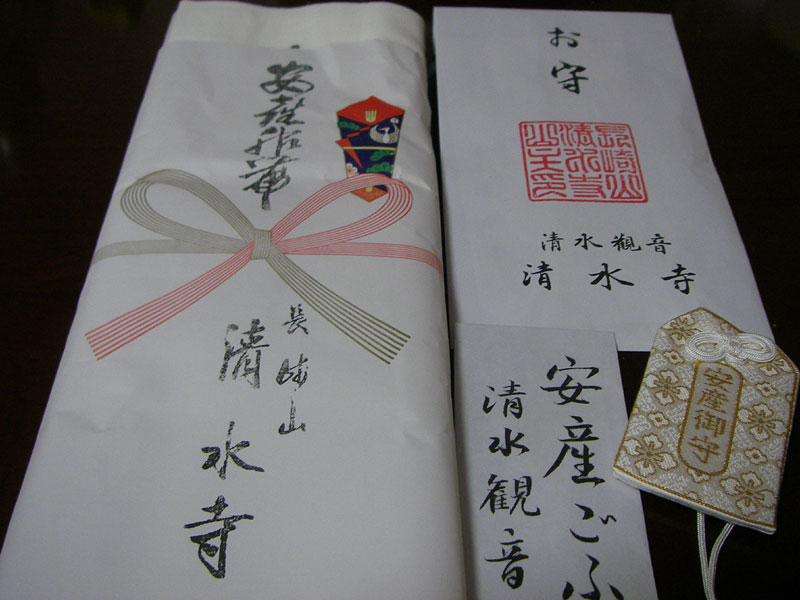 長崎山
清水寺
お守
長崎山
清水寺
山主印
清水觀音
清水寺
安産ごふ
清水観音
安産御守